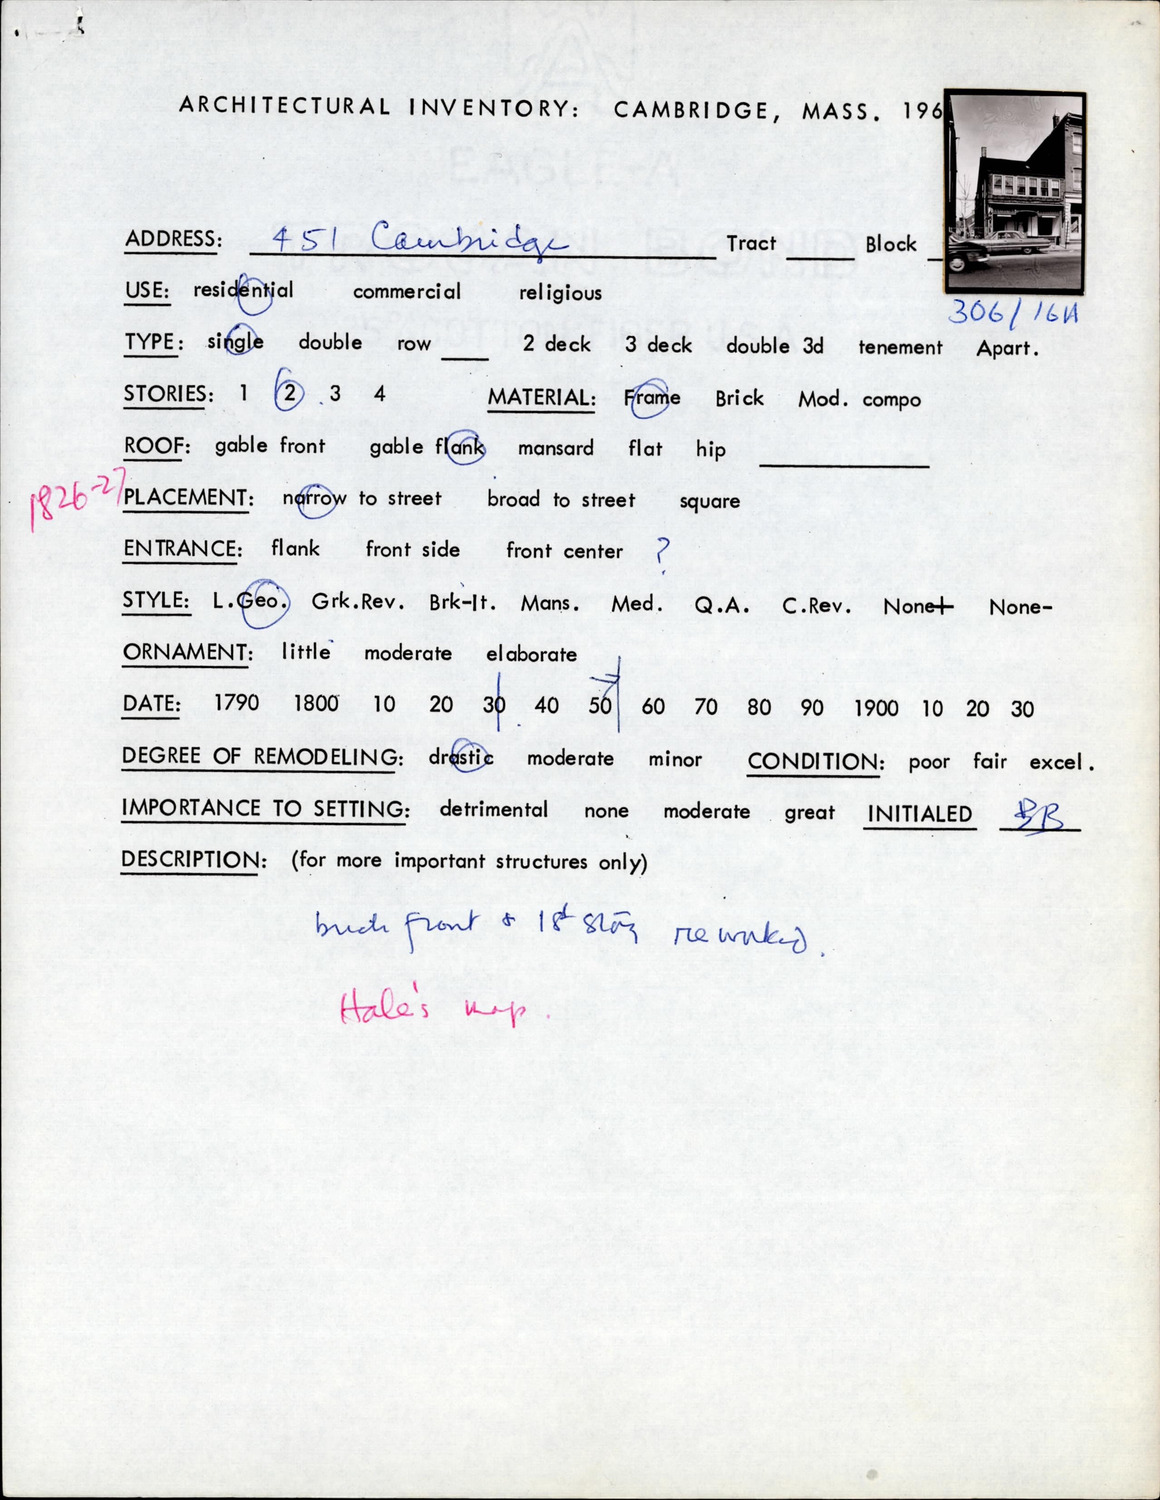 ARCHITECTURAL INVENTORY: CAMBRIDGE, MASS. 196
ADDRESS: 451 Cambridge Tract Block
USE: residential commercial religious
306/16A
TYPE: single double row 2 deck 3 deck double 3d tenement Apart.
STORIES: 1 2 3 4 MATERIAL: Frame Brick Mod. compo
ROOF: gable front gable flank mansard flat hip
1826-27
PLACEMENT: narrow to street broad to street square
ENTRANCE: flank front side front center ?
STYLE: L.Geo. Grk.Rev. Brk-It. Mans. Med. Q.A. C.Rev. None+ None-
ORNAMENT: little moderate elaborate
DATE: 1790 1800 10 20 30 40 50 60 70 80 90 1900 10 20 30
DEGREE OF REMODELING: drastic moderate minor CONDITION: poor fair excel.
IMPORTANCE TO SETTING: detrimental none moderate great INITIALED BB
DESCRIPTION: (for more important structures only)
brick front & 1st story reworked.
Hale's map.